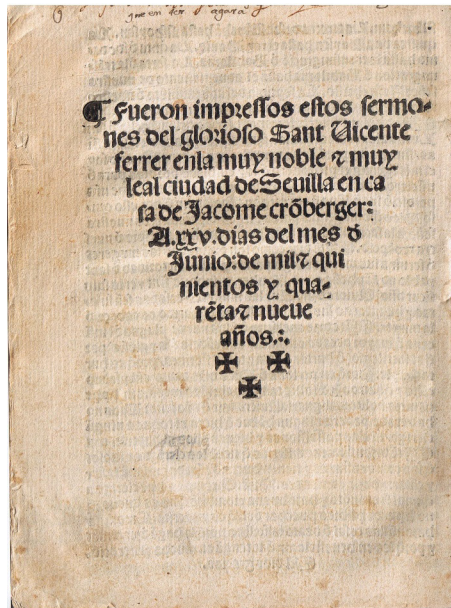 ¶ Fueron impressos estos sermo-
nes del glorioso Sant Uicente
ferrer enla muy noble ⁊ muy
leal ciudad de Seuilla en ca
sa de Jacome crõberger:
A.xxv.dias del mes đ
Junio:de mil⁊ qui
nientos y qua-
rẽta⁊ nueue
años.:.
✠ ✠
✠